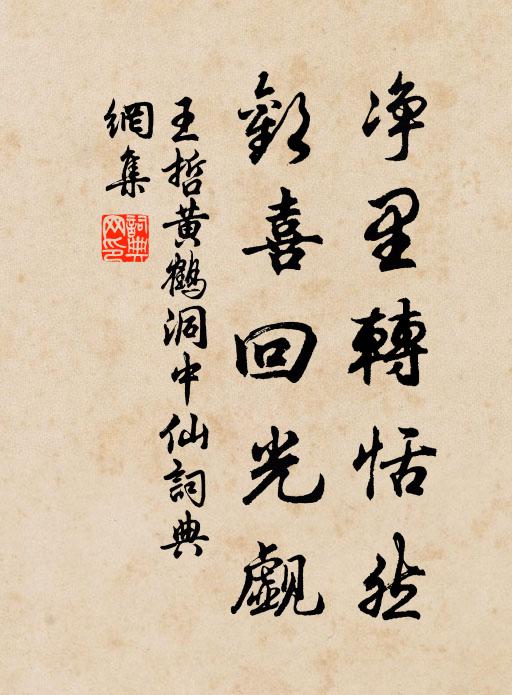 净里轉恬然
歡喜回光覷
王哲黄鶴洞中仙詞典
網集
詞典
网印